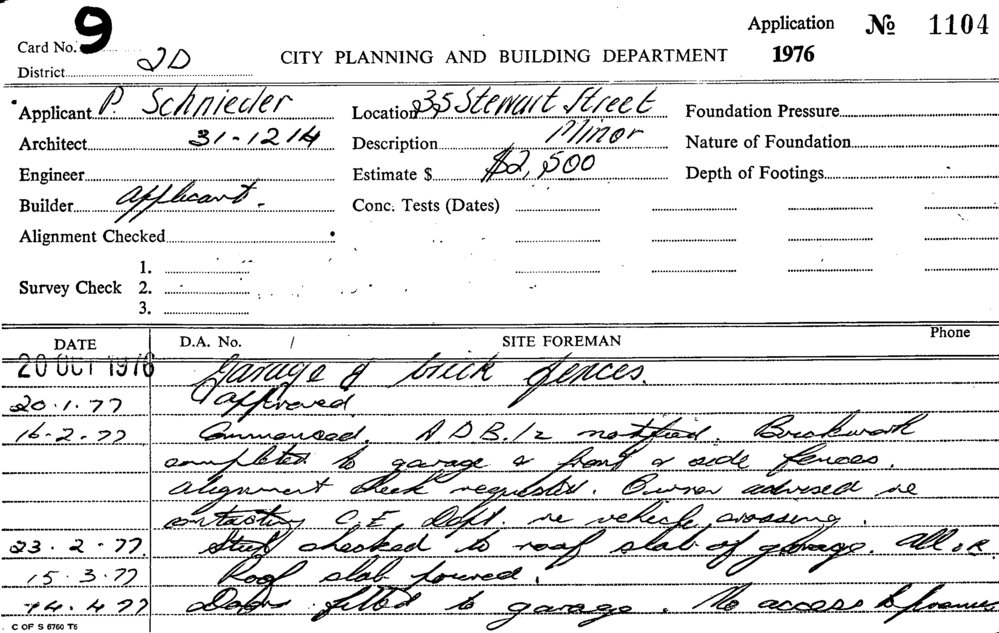 Card No. 9
District 2D
CITY PLANNING AND BUILDING DEPARTMENT
Application No 1104
1976
Applicant P. Schnieder
Location 35 Stewart Street
Foundation Pressure
Architect 31-1214
Description Minor
Nature of Foundation
Engineer
Estimate $ $2,500
Depth of Footings
Builder Applicant.
Conc. Tests (Dates)
Alignment Checked
Survey Check 1.
2.
3.
DATE D.A. No. / SITE FOREMAN Phone
20 OCT 1976 Garage & brick fences.
20.1.77 Approved.
16-2-77 Commenced. A.D.B.I2 notified. Brickwork
completed to garage & front & side fences.
Alignment check requested. Owner advised re
contacting C.E. Dept. re vehicle crossing.
23.2.77. Steel checked to roof slab of garage. All O.K
15.3.77 Roof slab poured.
14.4.77 Doors fitted to garage. No access to premises
C OF S 6760 T6